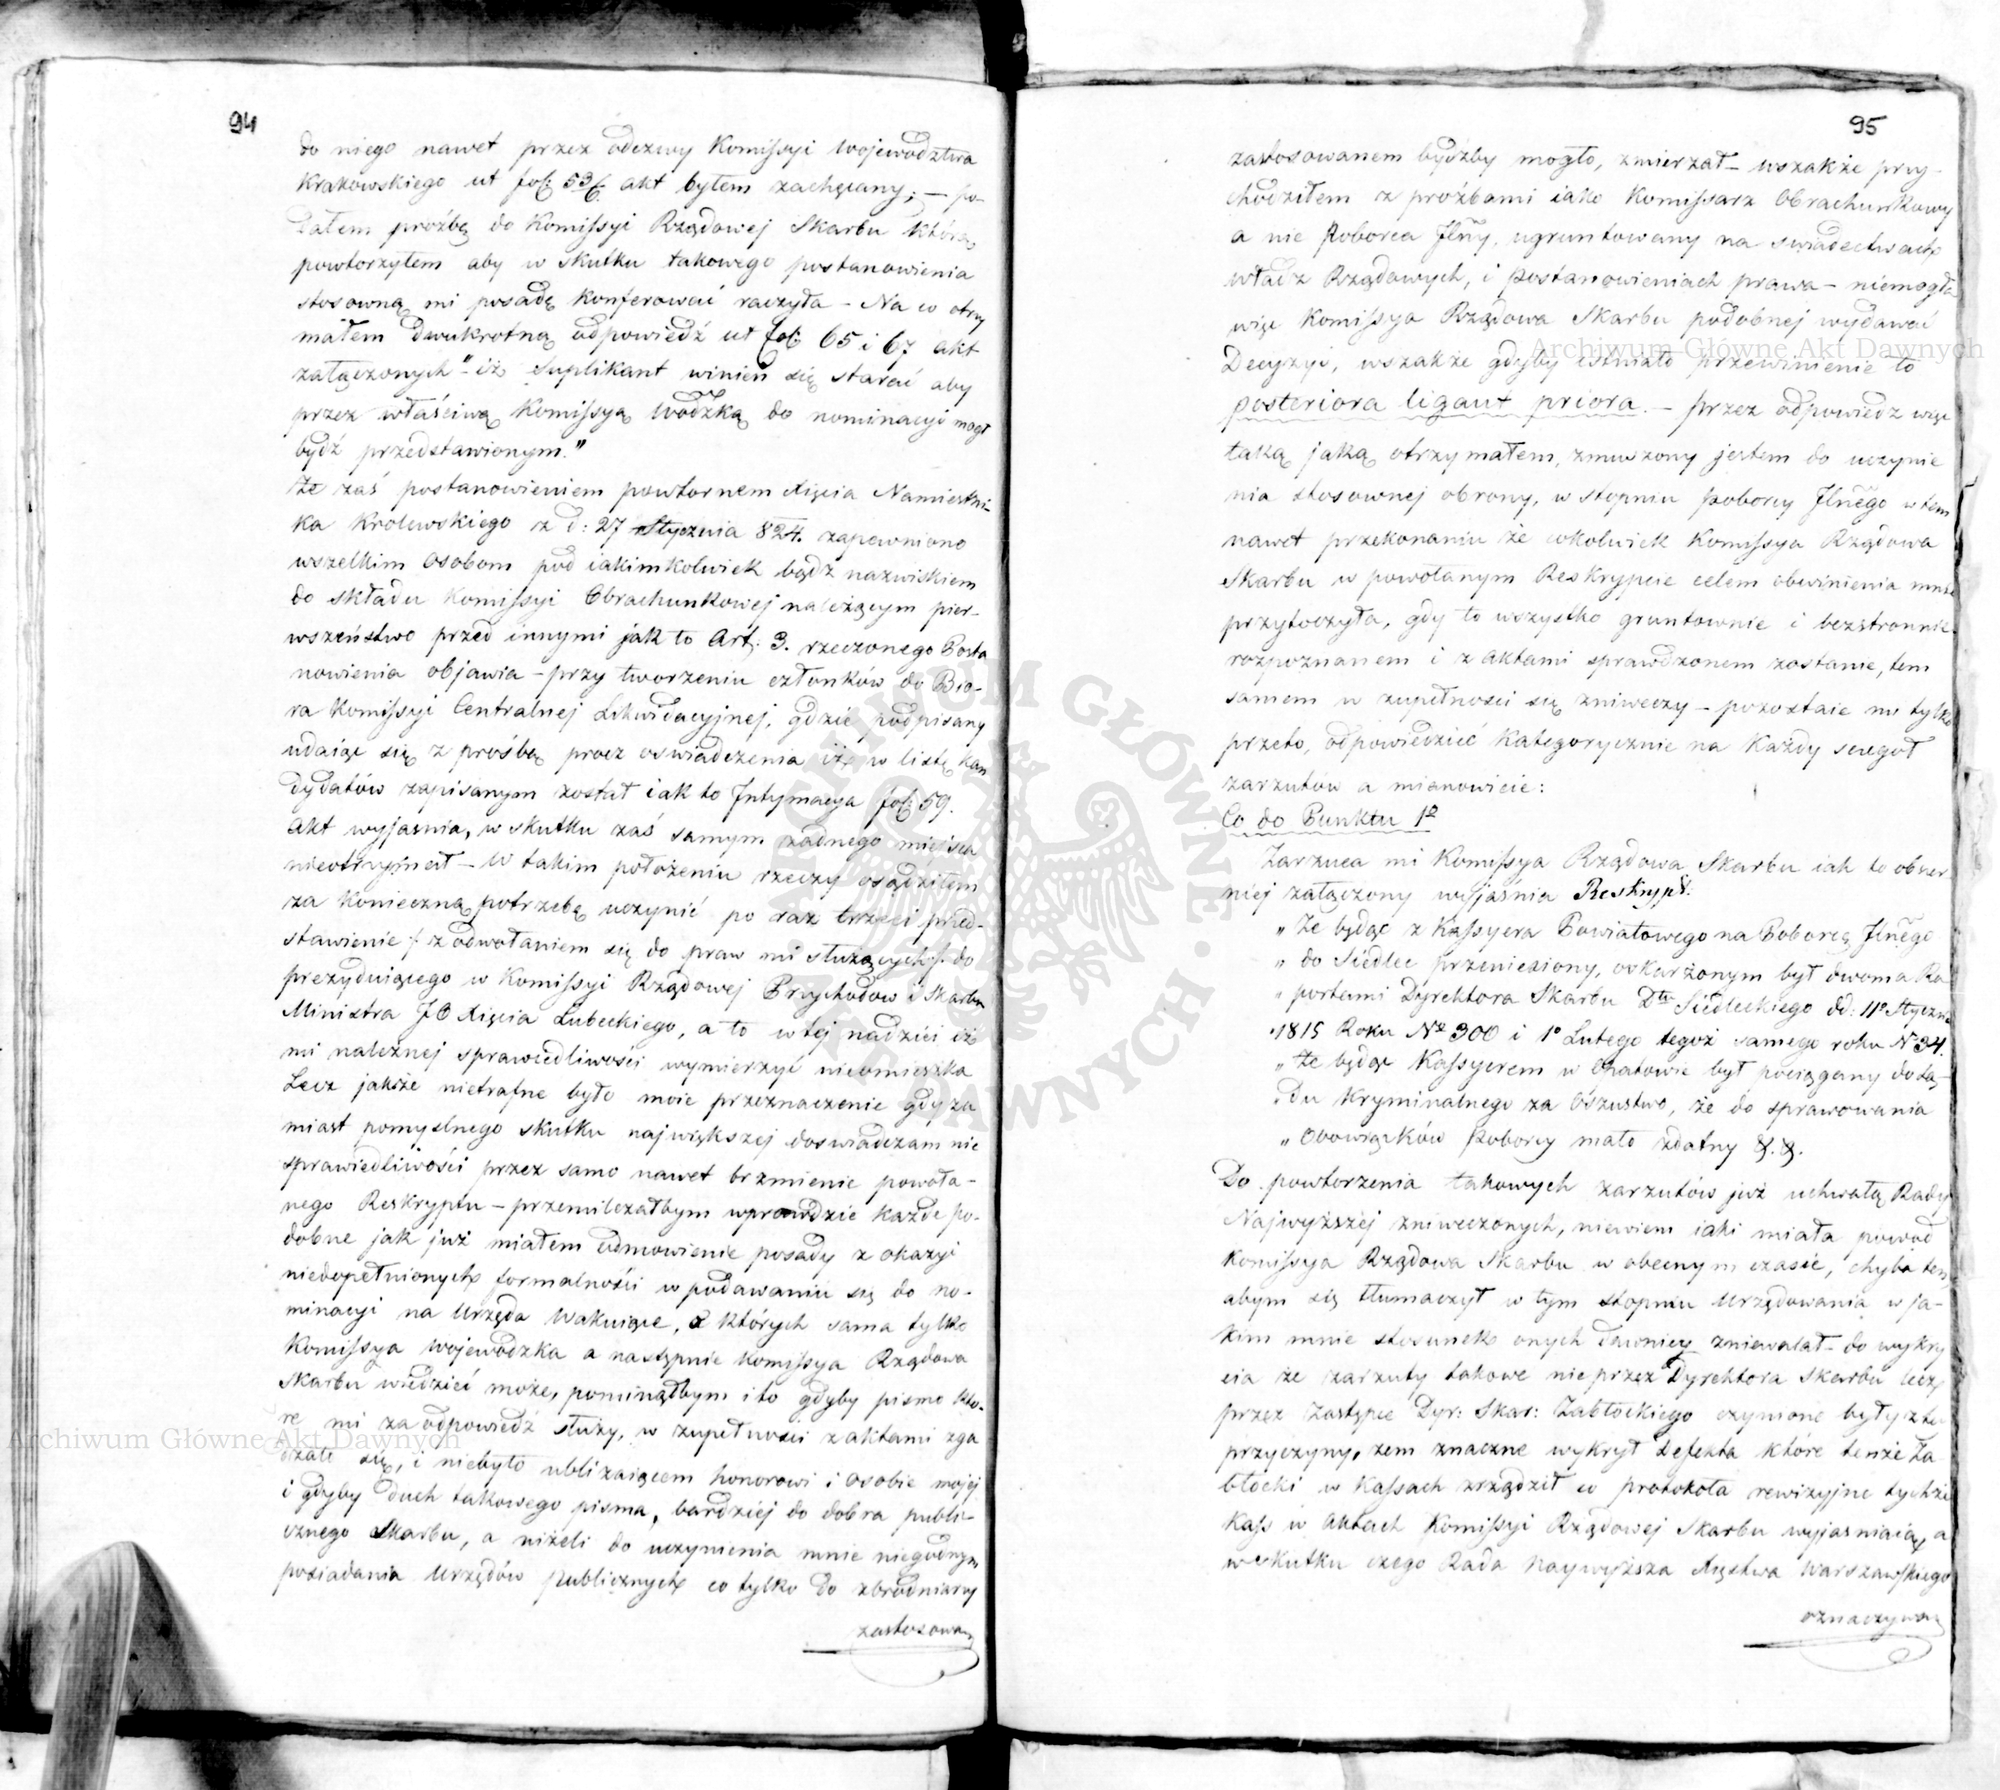 94
do niego nawet przez odezwy Komissyi Województwa
Krakowskiego ut fol: 53/6. akt byłem zachęcany; — po-
dałem prośbę do Komissyi Rządowej Skarbu którą
powtorzyłem aby w skutku takowego postanowienia
stosowną mi posadę konferować raczyła — Na co otrzy
małem dwukrotną odpowiedź ut fol: 65 i 67 akt
załączonych "iż Suplikant winień się starać aby
przez właściwą Komissyą Wódzką do nominacyi mogł
bydź przedstawionym."
Że zaś postanowieniem powtornem Xięcia Namiestni-
ka Krolewskiego z d: 27 Stycznia 824. zapewniono
wszelkim osobom pod iakimkolwiek bądź nazwiskiem
do składu Komissyi Obrachunkowej należącym pier-
wszeństwo przed innymi jak to Art: 3. rzeczonego Posta
nowienia objawia — przy tworzeniu członków do Bio-
ra Komissyi Centralnej Likwidacyjnej, gdzie podpisany
udaiąc się z prośbą procz oswiadczenia iż w listę kan
dydatów zapisanym został iak to Intymacya fol: 59.
akt wyjaśnia, w skutku zaś samym żadnego mieisca
nieotrzymał — W takim położeniu rzeczy osądziłem
za konieczną potrzebę uczynić po raz trzeci przed-
stawienie /: z odwołaniem się do praw mi służących :/ do
prezyduiącego w Komissyi Rządowej Przychodow i Skarbu
Ministra JO Xięcia Lubeckiego, a to w tej nadziei iż
mi należnej sprawiedliwości wymierzyć nieomieszka
Lecz jakże nietrafne było moie przeznaczenie gdy za
miast pomyslnego skutku największej doswiadczam nie
sprawiedliwości przez samo nawet brzmienie powoła-
nego Reskryptu — przemilczałbym wprawdzie każde po-
dobne jak już miałem odmowienie posady z okazyi
niedopełnionych formalności w podawaniu się do no-
minacyi na Urzęda Wakuiące, o których sama tylko
Komissya Wojewodzka a następnie Komissya Rządowa
Skarbu wiedzieć może, pominąłbym i to gdyby pismo kto-
re mi za odpowiedź służy, w zupełności z aktami zga
dzało się, i niebyło ubliżaiącem honorowi i osobie mojej
i gdyby duch takowego pisma, bardziej do dobra publi-
cznego Skarbu, a niżeli do uczynienia mnie niegodnym
posiadania Urzędów publicznych co tylko do zbrodniarzy
zastosowa
95
zastosowanem bydźby mogło, zmierzał — wszakże przy-
chodziłem z prośbami iako Komissarz Obrachunkowy
a nie Poborca Jlny, ugruntowany na swiadectwach
władz Rządowych, i postanowieniach prawa — niemogła
więc Komissya Rządowa Skarbu podobnej wydawać
Decyzyi, wszakże gdyby istniało przewinienie to
posteriora ligant priora. — przez odpowiedz więc
taką jaką otrzymałem, zmuszony jestem do uczynie
nia stosownej obrony, w stopniu Poborcy Jlnego w tem
nawet przekonaniu że cokolwiek Komissya Rządowa
Skarbu w powołanym Reskrypcie celem obwinienia mnie
przytoczyła, gdy to wszystko gruntownie i bezstronnie
rozpoznanem i z aktami sprawdzonem zostanie, tem
samem w zupełności się zniweczy — pozostaie mi tylko
przeto, odpowiedzieć kategorycznie na każdy szegoł
zarzutów a mianowicie:
Co do Punktu 1º
Zarzuca mi Komissya Rządowa Skarbu iak to obszer
niej załączony wyjaśnia Reskrypt.
" Że będąc z Kassyera Powiatowego na Poborcę Jlnego
" do Siedlec przeniesiony, oskarżonym był dwoma Ra
" portami Dyrektora Skarbu Dtu Siedleckiego dd: 11º Stycznia
" 1815 Roku Nº 300 i 1º Lutego tegoż samego roku N 34.
" Że będąc Kassyerem w Opatowie był pociągany do Są-
" du Kryminalnego za Oszustwo, że do sprawowania
" Obowiązków Poborcy mało zdatny &. &.
Do powtorzenia takowych zarzutów już uchwałą Rady
Najwyższej zniweczonych, niewiem iaki miała powod
Komissya Rządowa Skarbu w obecnym czasie, chyba ten
abym się tłumaczył w tym stopniu Urzędowania w ja-
kim mnie stosunek onych dawniey zniewalał — do wykry
cia że zarzuty takowe nie przez Dyrektora Skarbu lecz
przez Zastępce Dyr: Skar: Zabłockiego czynione były z tey
przyczyny, żem znaczne wykrył defekta które tenże Za
błocki w Kassach zrządził co protokoła rewizyjne tychże
Kass w Aktach Komissyi Rządowej Skarbu wyjaśniaią, a
w skutku czego Rada Naywyższa Xięstwa Warszawskiego
oznaczywszy
Archiwum Główne Akt Dawnych
Archiwum Główne Akt Dawnych
ARCHIWUM GŁÓWNE AKT DAWNYCH